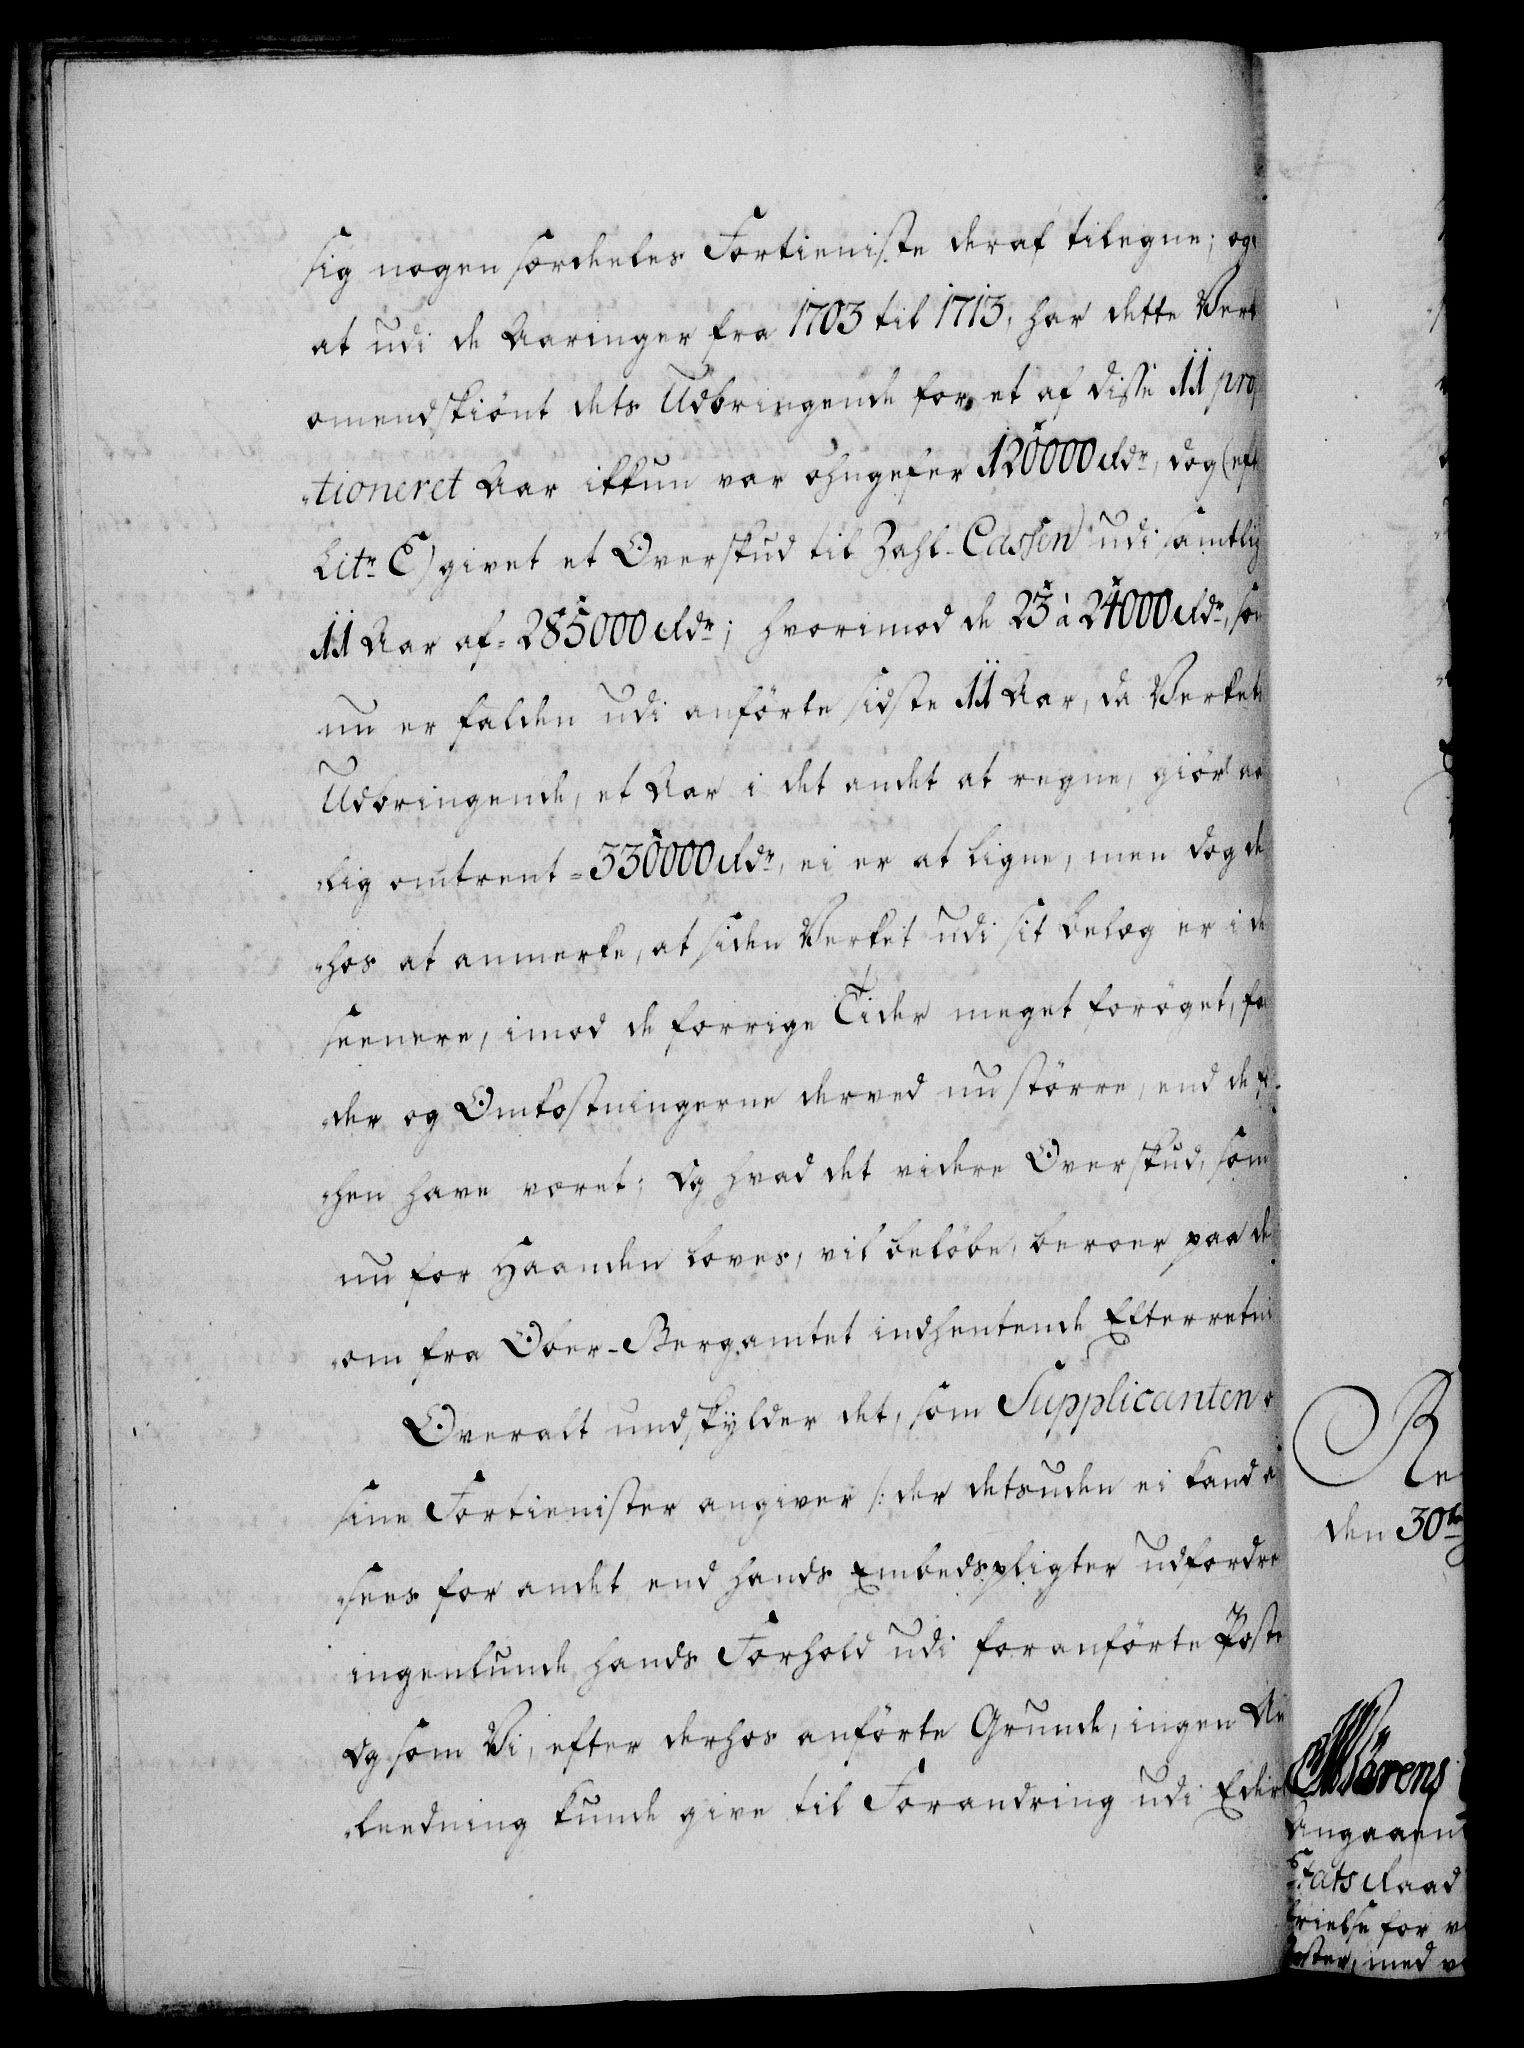 sig nogen særdeles Fortieniste deraf tilegne; og
at udi de Aaringer fra 1703 til 1713, har dette Verk
omendskiönt dets Udbringende for et af disse 11 pro¸
„tioneret Aar ikkun var ohngefer 120000 Rdr, dog (eft
Litr E) givet et Overskud til Zahl-Cassen udi samtlig
11 Aar af= 285000 Rdr; hvorimod de 23 à 24000 Rdr, som
nu er falden udi anförte sidste 11 Aar, da Verkets
Udbringende, et Aar i det andet at regne, giör aar
„lig omtrent = 330000 Rdr, ei er at ligne, men dog der
„hos at anmerke, at siden Verket udi sit belæg er i de
seenere, imod de forrige Tider meget forøget, fal
„der og Omkostningerne derved nu större, end de for
„hen have været; Og hvad det videre Overskud, som
nu for Haanden loves, vil belöbe, beroer paa de
„om fra Ober-Bergamtet indhentende Efterretni
Overalt undskylder det, som Supplicanten
sine Fortienister angiver /: der desuden ei kand a
„sees for andet end hands Embedspligter udfordre
ingenlunde hands Forhold udi foranförte Poste
Og som Vi, efter derhos anförte Grunde, ingen An
„leedning kunde give til Forandring udi Eders
Re
den 30te
Sörens
Angaaen
Etats Raad
brielse for
Poster, med